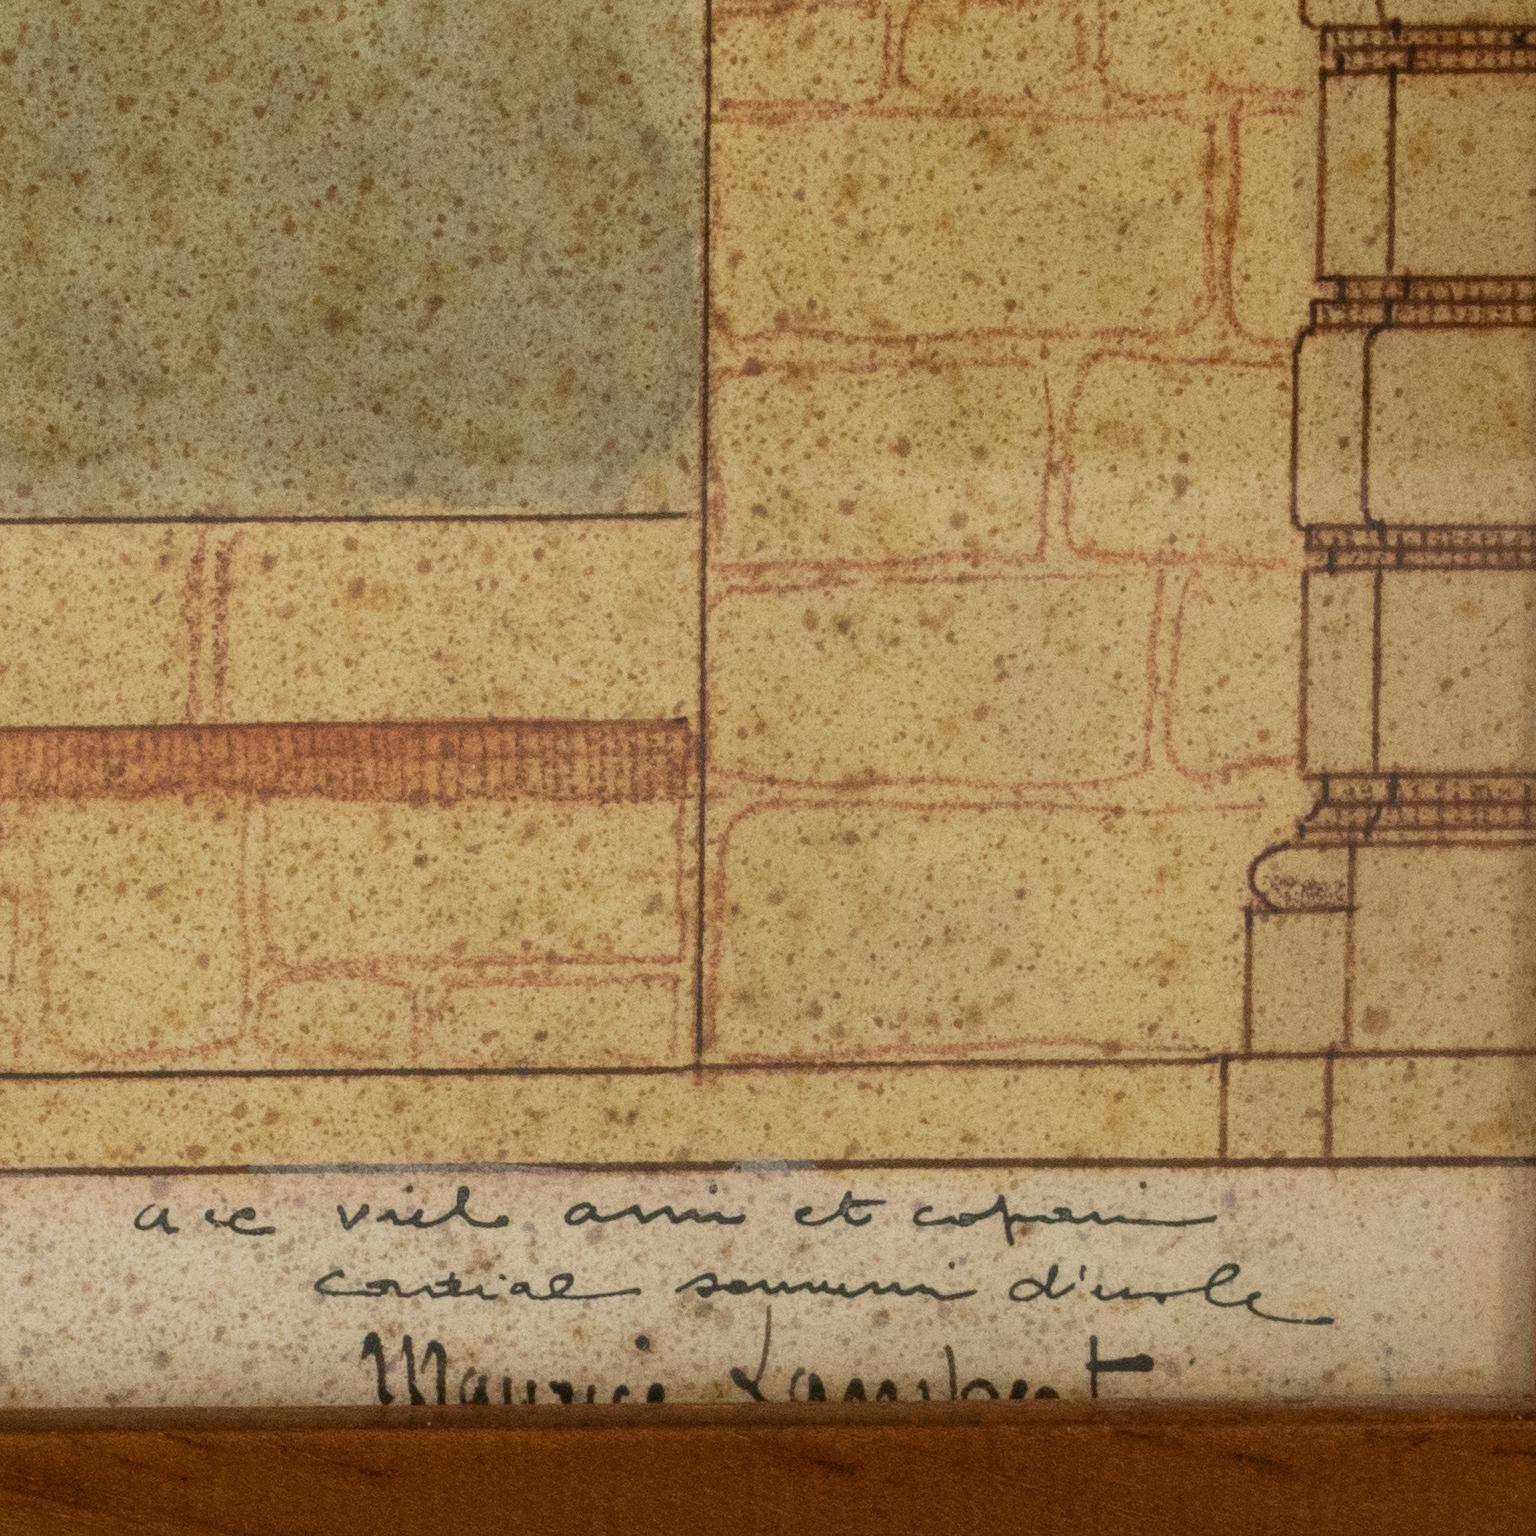 au vieil ami et copain
cordial souvenir d'école
Maurice Lambert